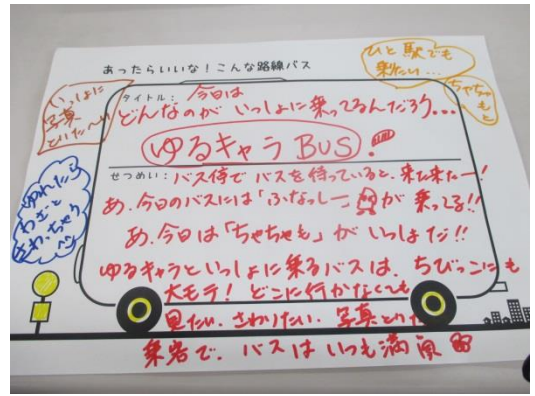 あったらいいな！こんな路線バス
ひと駅でも
乗たい…
ちゃちゃもと
いっしょに
写真
といた〜い
タイトル：今日は
どんなのが いっしょに乗ってるんだろう…
ゆるキャラBUS！
せつめい：バス停でバスを待っていると、来た来たー！
あ、今日のバスには「ふなっしー」が乗ってる!!
あ、今日は「ちゃちゃも」がいっしょだ!!
ゆるキャラといっしょに乗るバスは、ちびっこにも
大モテ！どこに行かなくても
見たい、さわりたい、写真とりた
乗客で、バスはいつも満風
ゆれたら
わざと
さわっちゃう